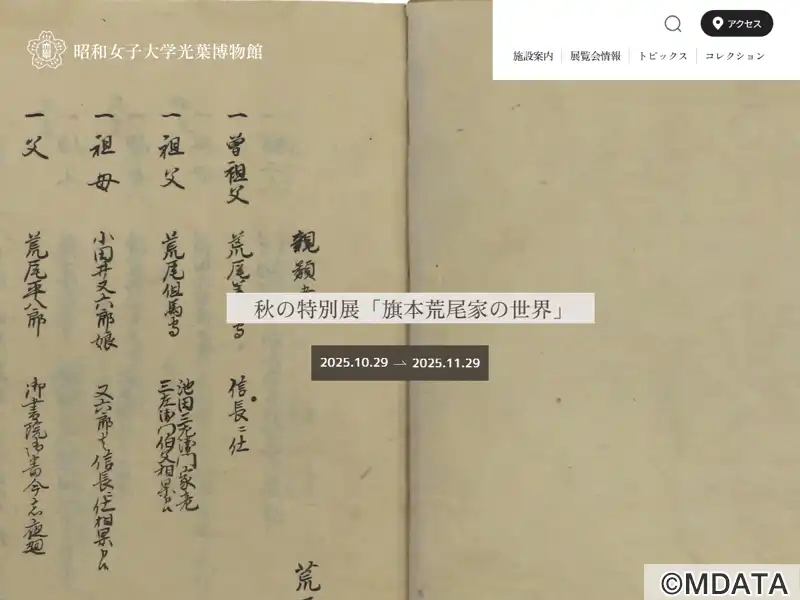 昭和女子大学光葉博物館
アクセス
施設案内
展覧会情報
トピックス
コレクション
秋の特別展「旗本荒尾家の世界」
2025.10.29 → 2025.11.29
親類
一 曽祖父 荒尾 信長ニ仕
一 祖父 荒尾但馬守 池田三左衛門家老
三左衛門伯父相果
一 祖母 小田井又六郎娘 又六郎 信長ニ仕相果
一 父 荒尾平八郎 御書院
荒
©MDATA